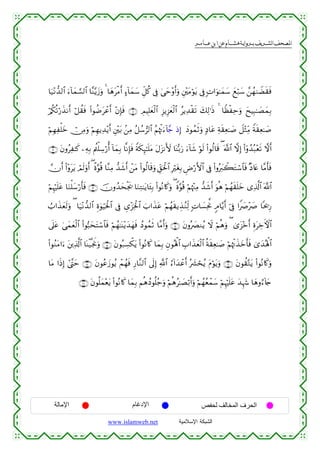 المصحف الشريف برواية هشام عن ابن عامر
فَقَضَىٰهُنَّ سَبْعَ سَمَٰوَاتٍ فِي يَوْمَيْنِ وَأَوْحَىٰ فِي كُلِّ سَمَآءٍ أَمْرَهَا ۚ وَزَيَّنَّا ٱلسَّمَآءَ ٱلدُّنْيَا
بِمَصَٰبِيحَ وَحِفْظًا ۚ ذَٰلِكَ تَقْدِيرُ ٱلْعَزِيزِ ٱلْعَلِيمِ فَإِنْ أَعْرَضُوا۟ فَقُلْ أَنذَرْتُكُمْ
صَٰعِقَةً مِّثْلَ صَٰعِقَةِ عَادٍ وَثَمُودَ إِذْ جَآءَتْهُمُ ٱلرُّسُلُ مِنۢ بَيْنِ أَيْدِيهِمْ وَمِنْ خَلْفِهِمْ
أَلَّا تَعْبُدُوٓا۟ إِلَّا ٱللَّهَ ۖ قَالُوا۟ لَوْ شَآءَ رَبُّنَا لَأَنزَلَ مَلَٰٓئِكَةً فَإِنَّا بِمَآ أُرْسِلْتُم بِهِۦ كَٰفِرُونَ
فَأَمَّا عَادٌ فَٱسْتَكْبَرُوا۟ فِي ٱلْأَرْضِ بِغَيْرِ ٱلْحَقِّ وَقَالُوا۟ مَنْ أَشَدُّ مِنَّا قُوَّةً ۖ أَوَلَمْ يَرَوْا۟ أَنَّ
ٱللَّهَ ٱلَّذِي خَلَقَهُمْ هُوَ أَشَدُّ مِنْهُمْ قُوَّةً ۖ وَكَانُوا۟ بِـَٔايَٰتِنَا يَجْحَدُونَ فَأَرْسَلْنَا عَلَيْهِمْ
رِيحًا صَرْصَرًا فِيٓ أَيَّامٍ نَّحِسَاتٍ لِّنُذِيقَهُمْ عَذَابَ ٱلْخِزْيِ فِي ٱلْحَيَوٰةِ ٱلدُّنْيَا ۖ وَلَعَذَابُ
ٱلْأٓخِرَةِ أَخْزَىٰ ۖ وَهُمْ لَا يُنصَرُونَ وَأَمَّا ثَمُودُ فَهَدَيْنَٰهُمْ فَٱسْتَحَبُّوا۟ ٱلْعَمَىٰ عَلَى
ٱلْهُدَىٰ فَأَخَذَتْهُمْ صَٰعِقَةُ ٱلْعَذَابِ ٱلْهُونِ بِمَا كَانُوا۟ يَكْسِبُونَ وَنَجَّيْنَا ٱلَّذِينَ ءَامَنُوا۟
وَكَانُوا۟ يَتَّقُونَ وَيَوْمَ يُحْشَرُ أَعْدَآءُ ٱللَّهِ إِلَى ٱلنَّارِ فَهُمْ يُوزَعُونَ حَتَّىٰٓ إِذَا مَا
جَآءُوهَا شَهِدَ عَلَيْهِمْ سَمْعُهُمْ وَأَبْصَٰرُهُمْ وَجُلُودُهُم بِمَا كَانُوا۟ يَعْمَلُونَ
الحرف المخالف لحفص الإدغام الإمالة
الشبكة الإسلامية www.islamweb.net